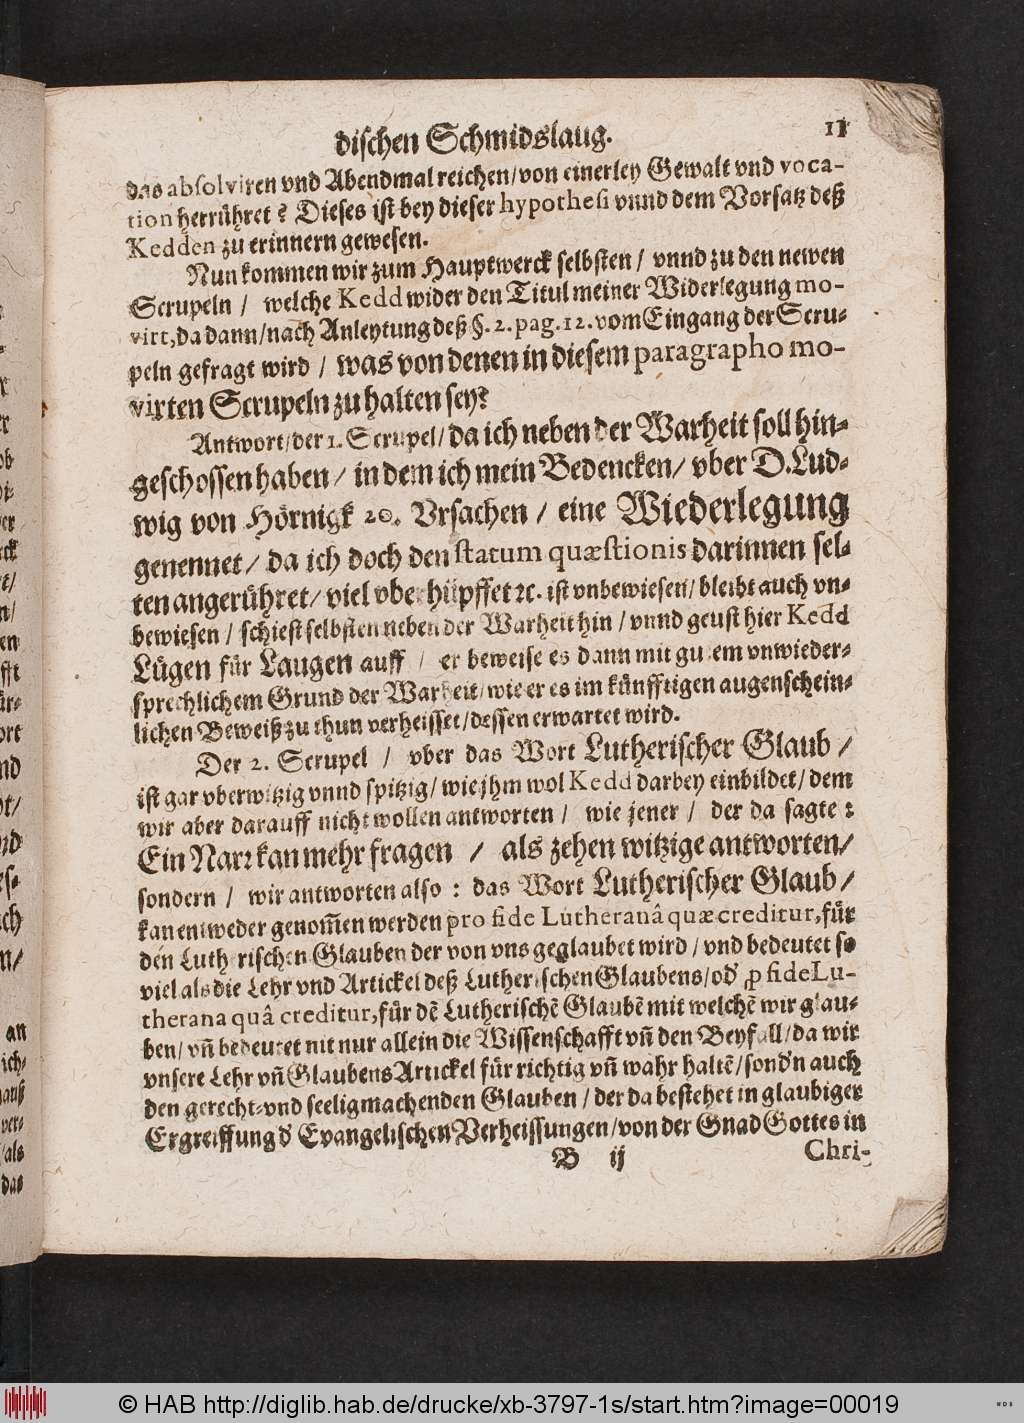 dischen Schmidslaug. 11
das absolviren vnd Abendmal reichen/von einerley Gewalt vnd voca-
tion herrühret? Dieses ist bey dieser hypothesi vnnd dem Vorsatz deß
Kedden zu erinnern gewesen.
Nun kommen wir zum Hauptwerck selbsten/ vnnd zu den newen
Scrupeln/ welche Kedd wider den Titul meiner Widerlegung mo-
virt, da dann/nach Anleytung deß §. 2. pag. 12. vom Eingang der Scru-
peln gefragt wird/ was von denen in diesem paragrapho mo-
virten Scrupeln zu halten sey?
Antwort/der 1. Scrupel/da ich neben der Warheit soll hin-
geschossen haben/ in dem ich mein Bedencken/ vber D. Lud-
wig von Hörnigk 20. Vrsachen/ eine Wiederlegung
genennet/ da ich doch den statum quæstionis darinnen sel-
ten angerühret/ viel vberhüpffet ꝛc. ist vnbewiesen/ bleibt auch vn-
bewiesen/ schiest selbsten neben der Warheit hin/ vnnd geust hier Kedd
Lügen für Laugen auff/ er beweise es dann mit gutem vnwieder-
sprechlichem Grund der Warheit/ wie er es im künfftigen augenschein-
lichen Beweiß zu thun verheisset/dessen erwartet wird.
Der 2. Scrupel/ vber das Wort Lutherischer Glaub/
ist gar vberwitzig vnnd spitzig/ wie jhm wol Kedd darbey einbildet/ dem
wir aber darauff nicht wollen antworten/ wie jener/ der da sagte:
Ein Narꝛ kan mehr fragen/ als zehen witzige antworten/
sondern/ wir antworten also: das Wort Lutherischer Glaub/
kan entweder genom̃en werden pro fide Lutheranâ quæ creditur, für
den Lutherischen Glauben der von vns geglaubet wird/ vnd bedeutet so
viel als die Lehr vnd Artickel deß Lutherischen Glaubens/od' ꝓ fide Lu-
therana quâ creditur, für dẽ Lutherischẽ Glaubẽ mit welchẽ wir glau-
ben/ vñ bedeutet nit nur allein die Wissenschafft vñ den Beyfall/da wir
vnsere Lehr vñ Glaubens Artickel für richtig vñ wahr haltẽ/sond'n auch
den gerecht- vnd seeligmachenden Glauben/ der da bestehet in glaubiger
Ergreiffung d' Evangelischen Verheissungen/von der Gnad Gottes in
B ij Chri-
an
als
das
© HAB http://diglib.hab.de/drucke/xb-3797-1s/start.htm?image=00019